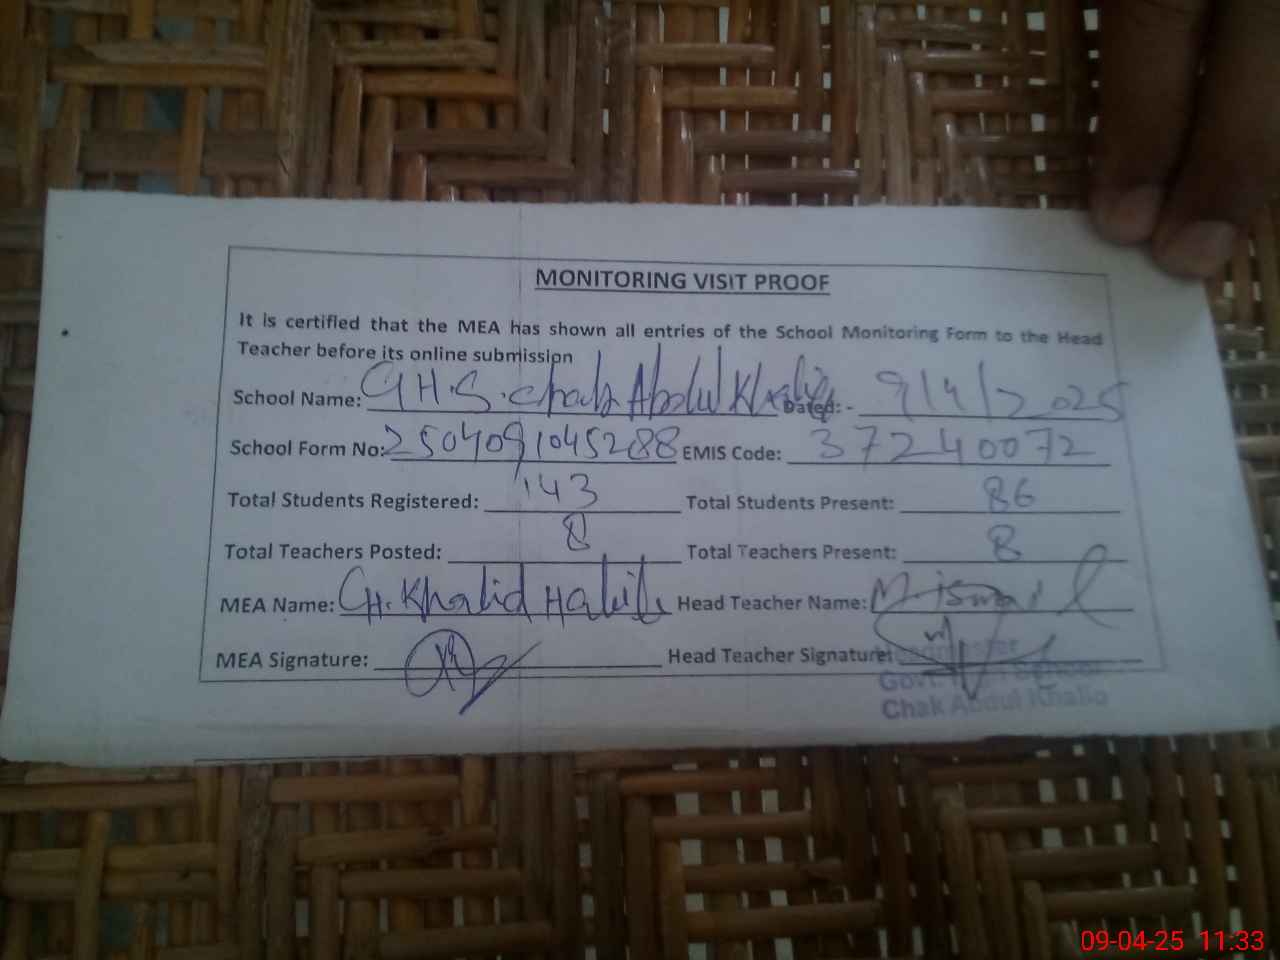 MONITORING VISIT PROOF
It is certified that the MEA has shown all entries of the School Monitoring Form to the Head
Teacher before its online submission
School Name: G H.S. Chak Abdul Khaliq Dated: - 9/4/2025
School Form No: 2504091045288 EMIS Code: 37240072
Total Students Registered: 143 Total Students Present: 86
Total Teachers Posted: 8 Total Teachers Present: 8
MEA Name: CH. Khalid Habib Head Teacher Name: M. Ismail
MEA Signature: Head Teacher Signature:
Headmaster
Govt. High School
Chak Abdul Khaliq
09-04-25 11:33